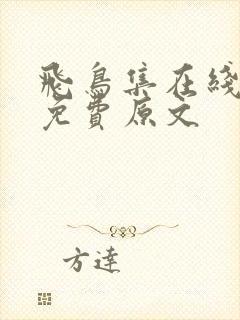 飛鳥集在綫
免費原文
方達